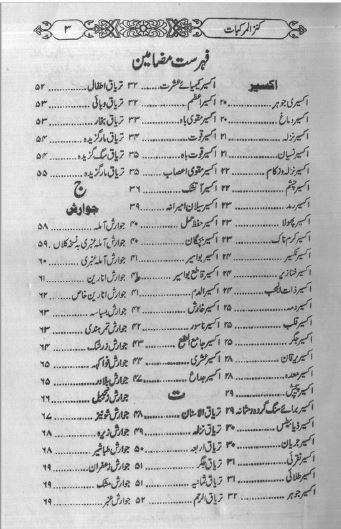 کنز المرکبات ۳
فہرست مضامین
اکسیر
اکسیری جوہر ۲۰
اکسیر دماغ ۲۰
اکسیر نزلہ ۲۱
اکسیر نسیان ۲۱
اکسیر نزلہ زکام ۲۲
اکسیر چشم ۲۲
اکسیر رمد ۲۳
اکسیر پھولا ۲۳
اکسیر کرم ناک ۲۳
اکسیر نکسیر ۲۴
اکسیر خنازیر ۲۴
اکسیر ذات الجنب ۲۴
اکسیر دمہ ۲۵
اکسیر قلب ۲۵
اکسیر جگر ۲۵
اکسیر یرقان ۲۸
اکسیر معدہ ۲۸
اکسیر پیچش ۲۹
اکسیر برائے سنگ گردہ و مثانہ ۲۹
اکسیر ذیابیطس ۳۰
اکسیر جریان ۳۰
اکسیر نقرئی ۳۱
اکسیر طلائی ۳۱
اکسیر جوہر ۳۲
اکسیر کیمیائے عشرت ۳۲
اکسیر اعظم ۳۲
اکسیر مقوی باہ ۳۳
اکسیر قوت ۳۴
اکسیر قوت باہ ۳۵
اکسیر مقوی اعصاب ۳۵
اکسیر آتشک ۳۶
اکسیر سیلان امیرانہ ۳۹
اکسیر حفظ حمل ۴۰
اکسیر بچگان ۴۰
اکسیر بواسیر ۴۱
اکسیر قاطع بواسیر
اکسیر الدم ۴۱
اکسیر خارش ۴۲
اکسیر ناسور ۴۲
اکسیر جامع النفع ۴۳
اکسیر عشری ۴۴
اکسیر صداع ۴۷
ت
تریاق الاسنان ۴۸
تریاق نزلہ ۴۹
تریاق اربعہ ۵۰
تریاق جگر ۵۱
تریاق ثمانیہ ۵۱
تریاق الرحم ۵۲
تریاق اطفال ۵۲
تریاق وبائی ۵۳
تریاق بخار ۵۳
تریاق مار گزیدہ ۵۴
تریاق سگ گزیدہ ۵۴
تریاق مار گزیدہ ۵۵
ج
جوارش
جوارش آملہ ۵۸
جوارش آملہ عنبری بہ نسخہ کلاں ۵۹
جوارش آملہ عنبری ۶۰
جوارش انارین ۶۱
جوارش انارین خاص ۶۲
جوارش بسباسہ ۶۳
جوارش تمر ہندی ۶۳
جوارش زرشک ۶۴
جوارش فواکہہ ۶۵
جوارش بلادر ۶۵
جوارش زنجبیل ۶۶
جوارش شونیز ۶۷
جوارش زیرہ ۶۸
جوارش طباشیر ۶۸
جوارش زعفران ۶۹
جوارش مشک ۶۹
جوارش عنبر ۶۹